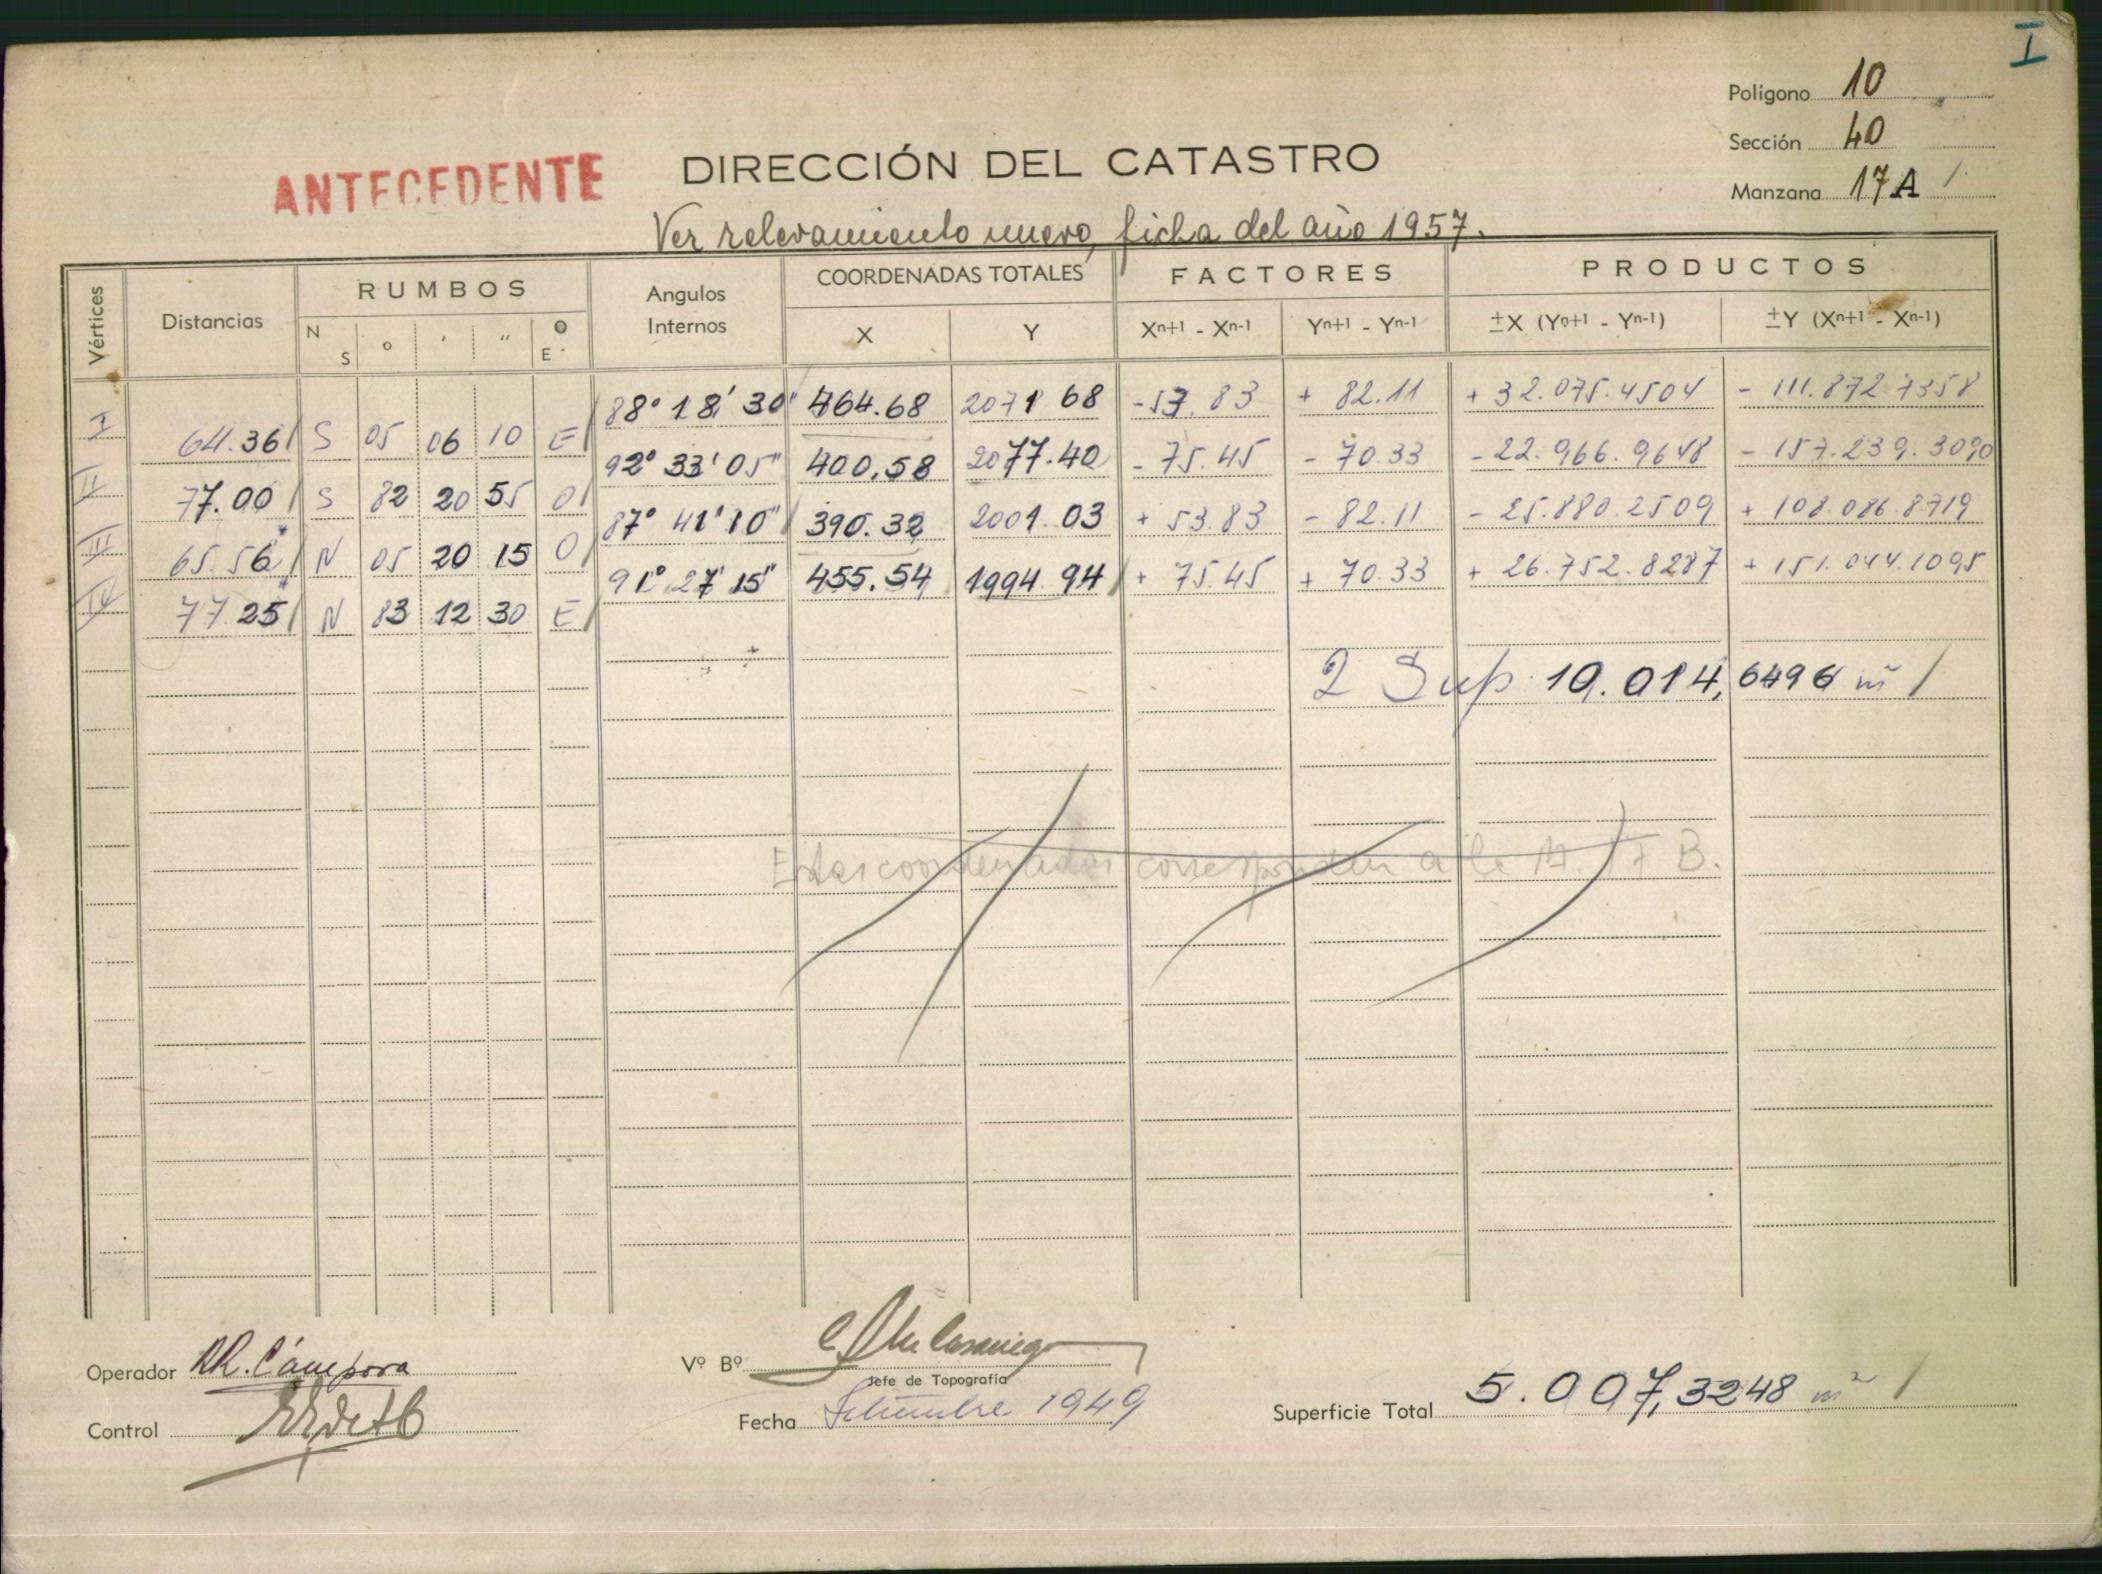 I
Polígono 10
Sección 40
Manzana 17A /
ANTECEDENTE
DIRECCIÓN DEL CATASTRO
Ver relevamiento nuevo, ficha del año 1957.
Vértices Distancias RUMBOS Angulos Internos COORDENADAS TOTALES FACTORES PRODUCTOS
N S ° ' " O E X Y Xn+1 - Xn-1 Yn+1 - Yn-1 ±X (Yn+1 - Yn-1) ±Y (Xn+1 - Xn-1)
88° 18' 30" 464.68 2071 68 -53.83 + 82.11 + 32.075.4504 - 111.872 7358
I 64.36/ S 05 06 10 E/
92° 33' 05" 400.58 2077.40 - 75.45 - 70.33 - 22.966.9648 - 157.239.3090
II 77.00/ S 82 20 55 O/
87° 41' 10" / 390.32 2001.03 + 53.83 - 82.11 - 25.880.2509 + 108.086.8719
III 65.56/ N 05 20 15 O/
91° 27' 15" 455.54 1994.94/ + 75.45 + 70.33 + 26.752.8287 + 151.044.1095
IV 77.25/ N 83 12 30 E/
2 Sup. 10.014,6496 m² /
Estas coordenadas corresponden a la M. 17 B.
Operador RR. Cámpora
Control
Vº Bº
Jefe de Topografía
Fecha Setiembre 1949
Superficie Total 5.007,3248 m² /